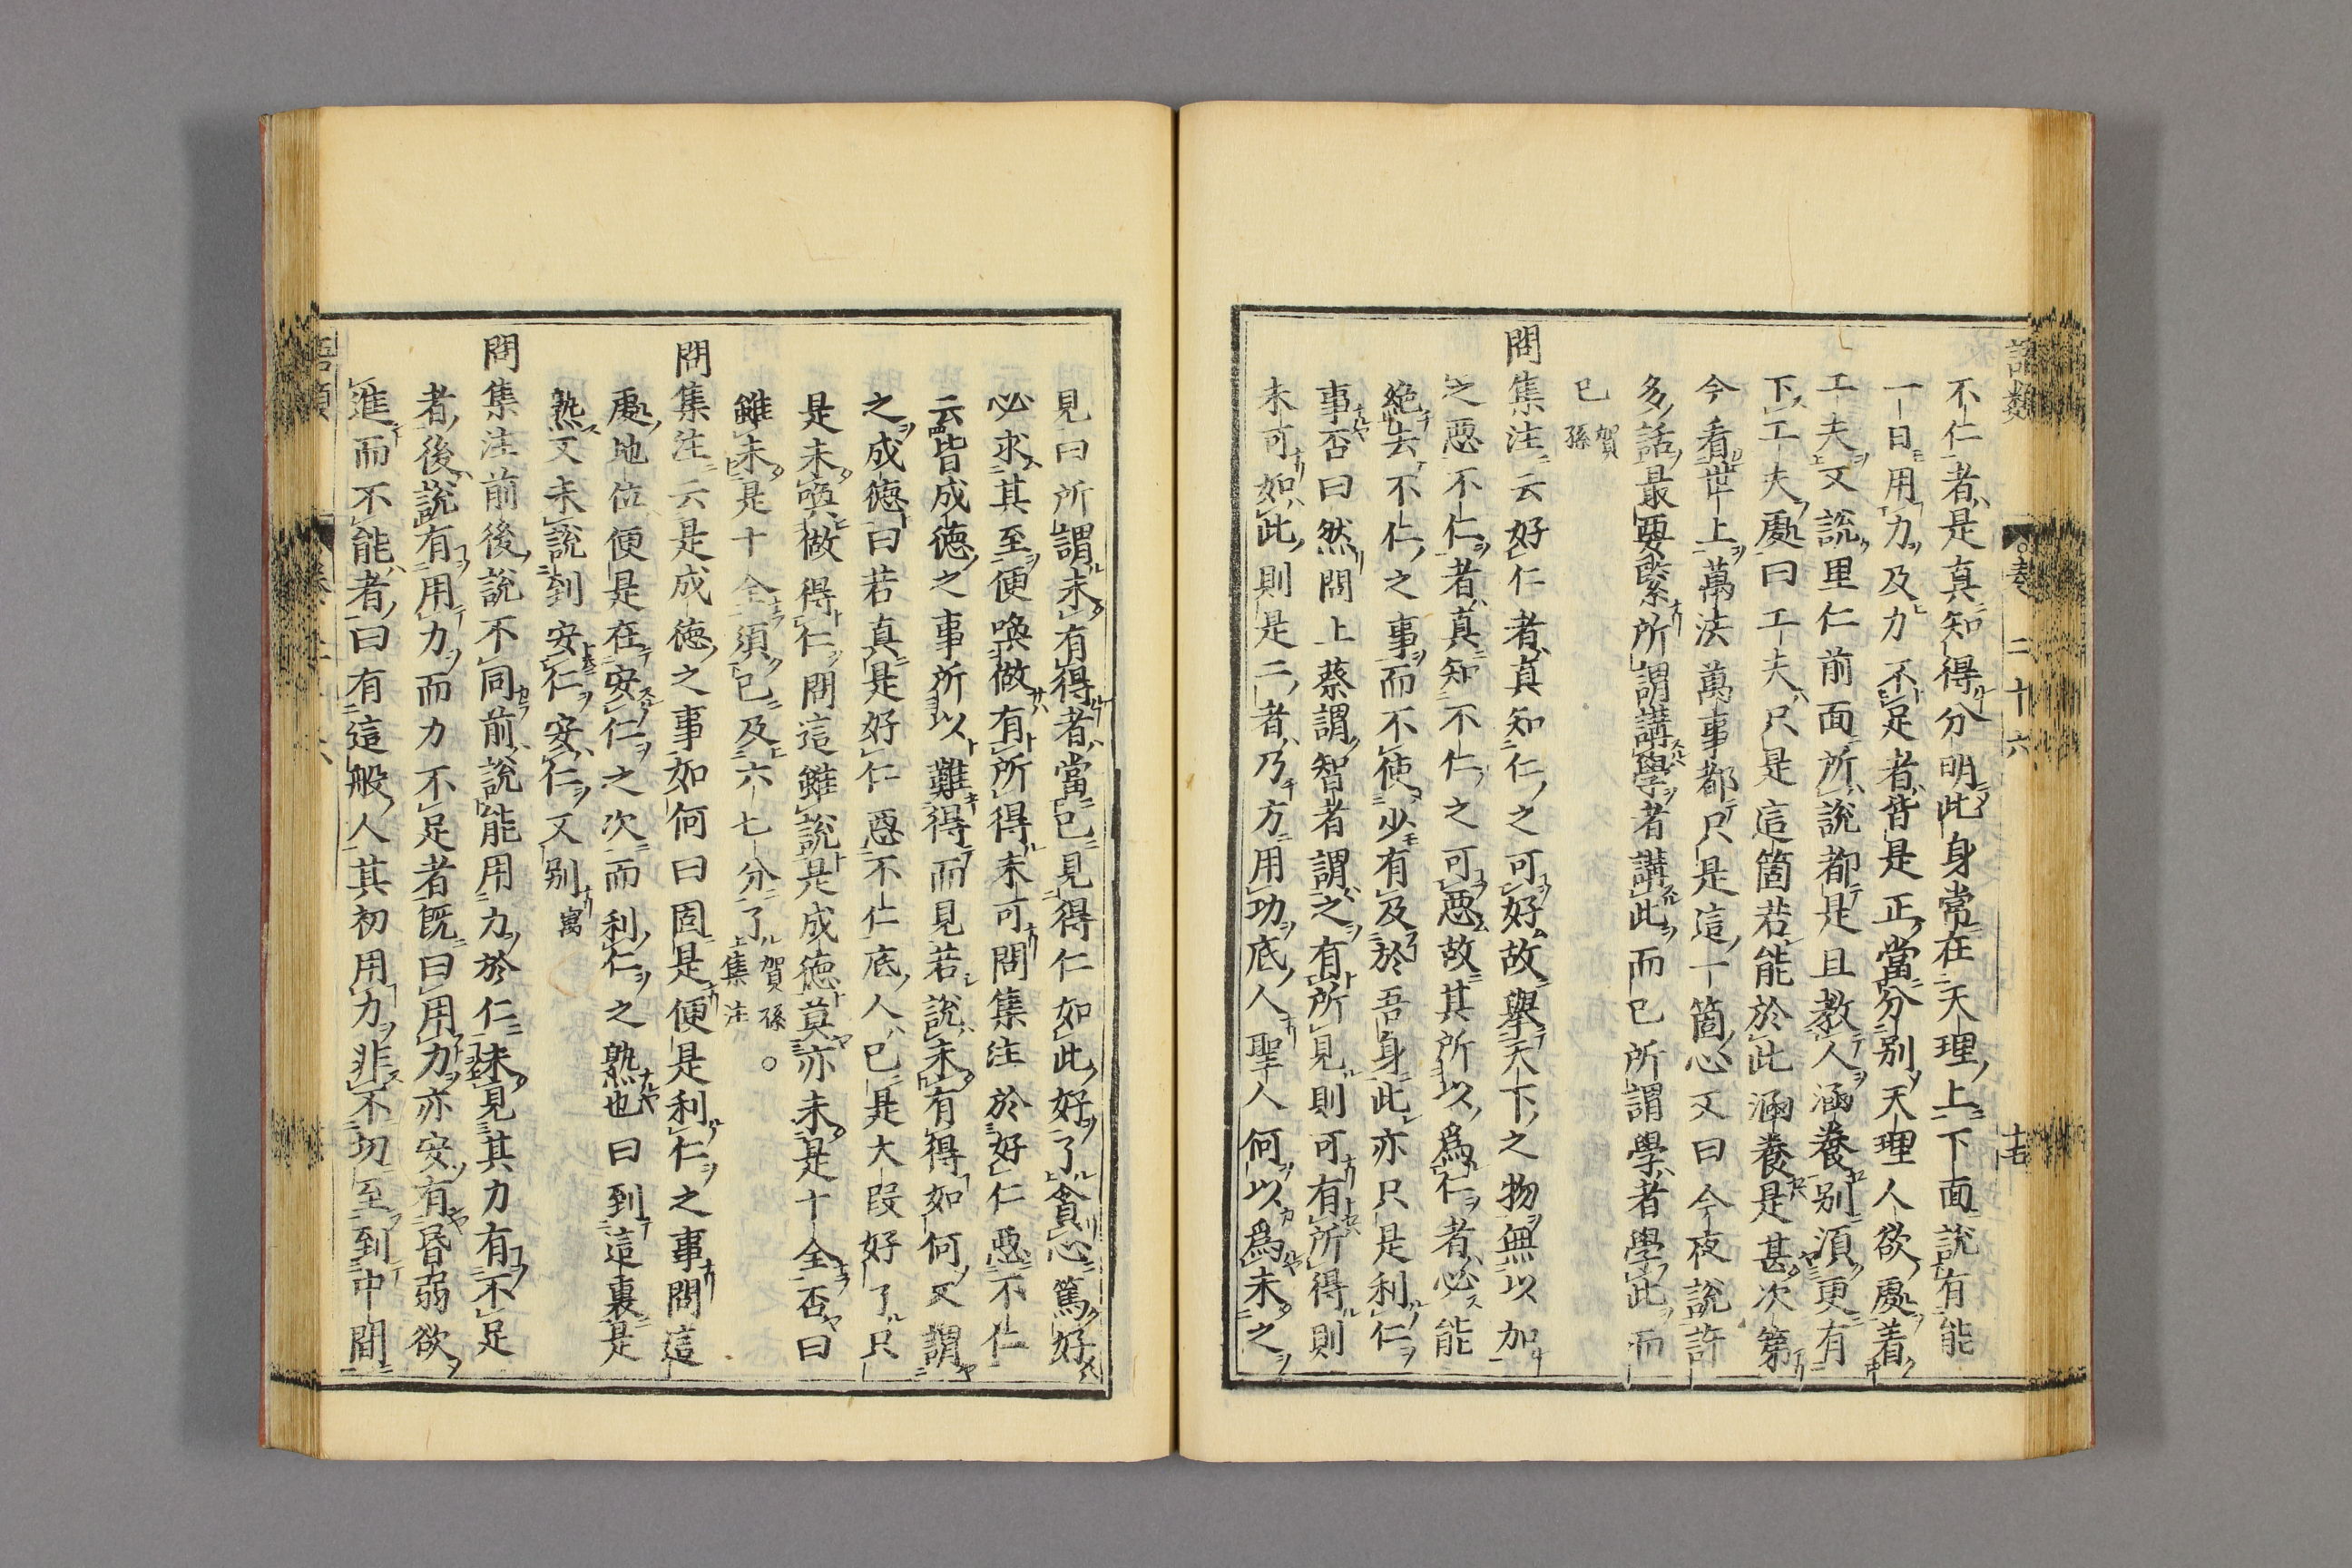 語類
卷二十六
十五
不仁者是真知得分明此身常在天理上下面說有能
一日用力及力不足者皆是正當分别天理人欲處着
工夫又說里仁前面所說都是且教人涵養别湏更有
下工夫處曰工夫只是這箇若能於此涵養是甚次第
今看世上萬法萬事都只是這一箇心又曰今夜說許
多話最要緊所謂講學者講此而已所謂學者學此而
已賀孫
問集注云好仁者真知仁之可好故舉天下之物無以加
之惡不仁者真知不仁之可惡故其所以爲仁者必能
絶去不仁之事而不使少有及於吾身此亦只是利仁
事否曰然問上蔡謂智者謂之有所見則可有所得則
未可如此則是二者乃方用功底人聖人何以爲未之
見曰所謂未有得者當已見得仁如此好了貪心篤好
必求其至便喚做有所得未可問集注於好仁惡不仁
云皆成徳之事所以難得而見若說未有得如何又謂
之成徳曰若真是好仁惡不仁底人已是大叚好了只
是未喚做得仁問這雖說是成徳莫亦未是十全否曰
雖未是十全須已及六七分了賀孫上集注
問集注云是成徳之事如何曰固是便是利仁之事問這
處地位便是在安仁之次而利仁之熟也曰到這裏是
熟又未說到安仁安仁又别㝢
問集注前後說不同前說能用力於仁未見其力有不足
者後說有用力而力不足者既曰用力亦安有昏弱欲
進而不能者曰有這般人其初用力非不切至到中間
語類